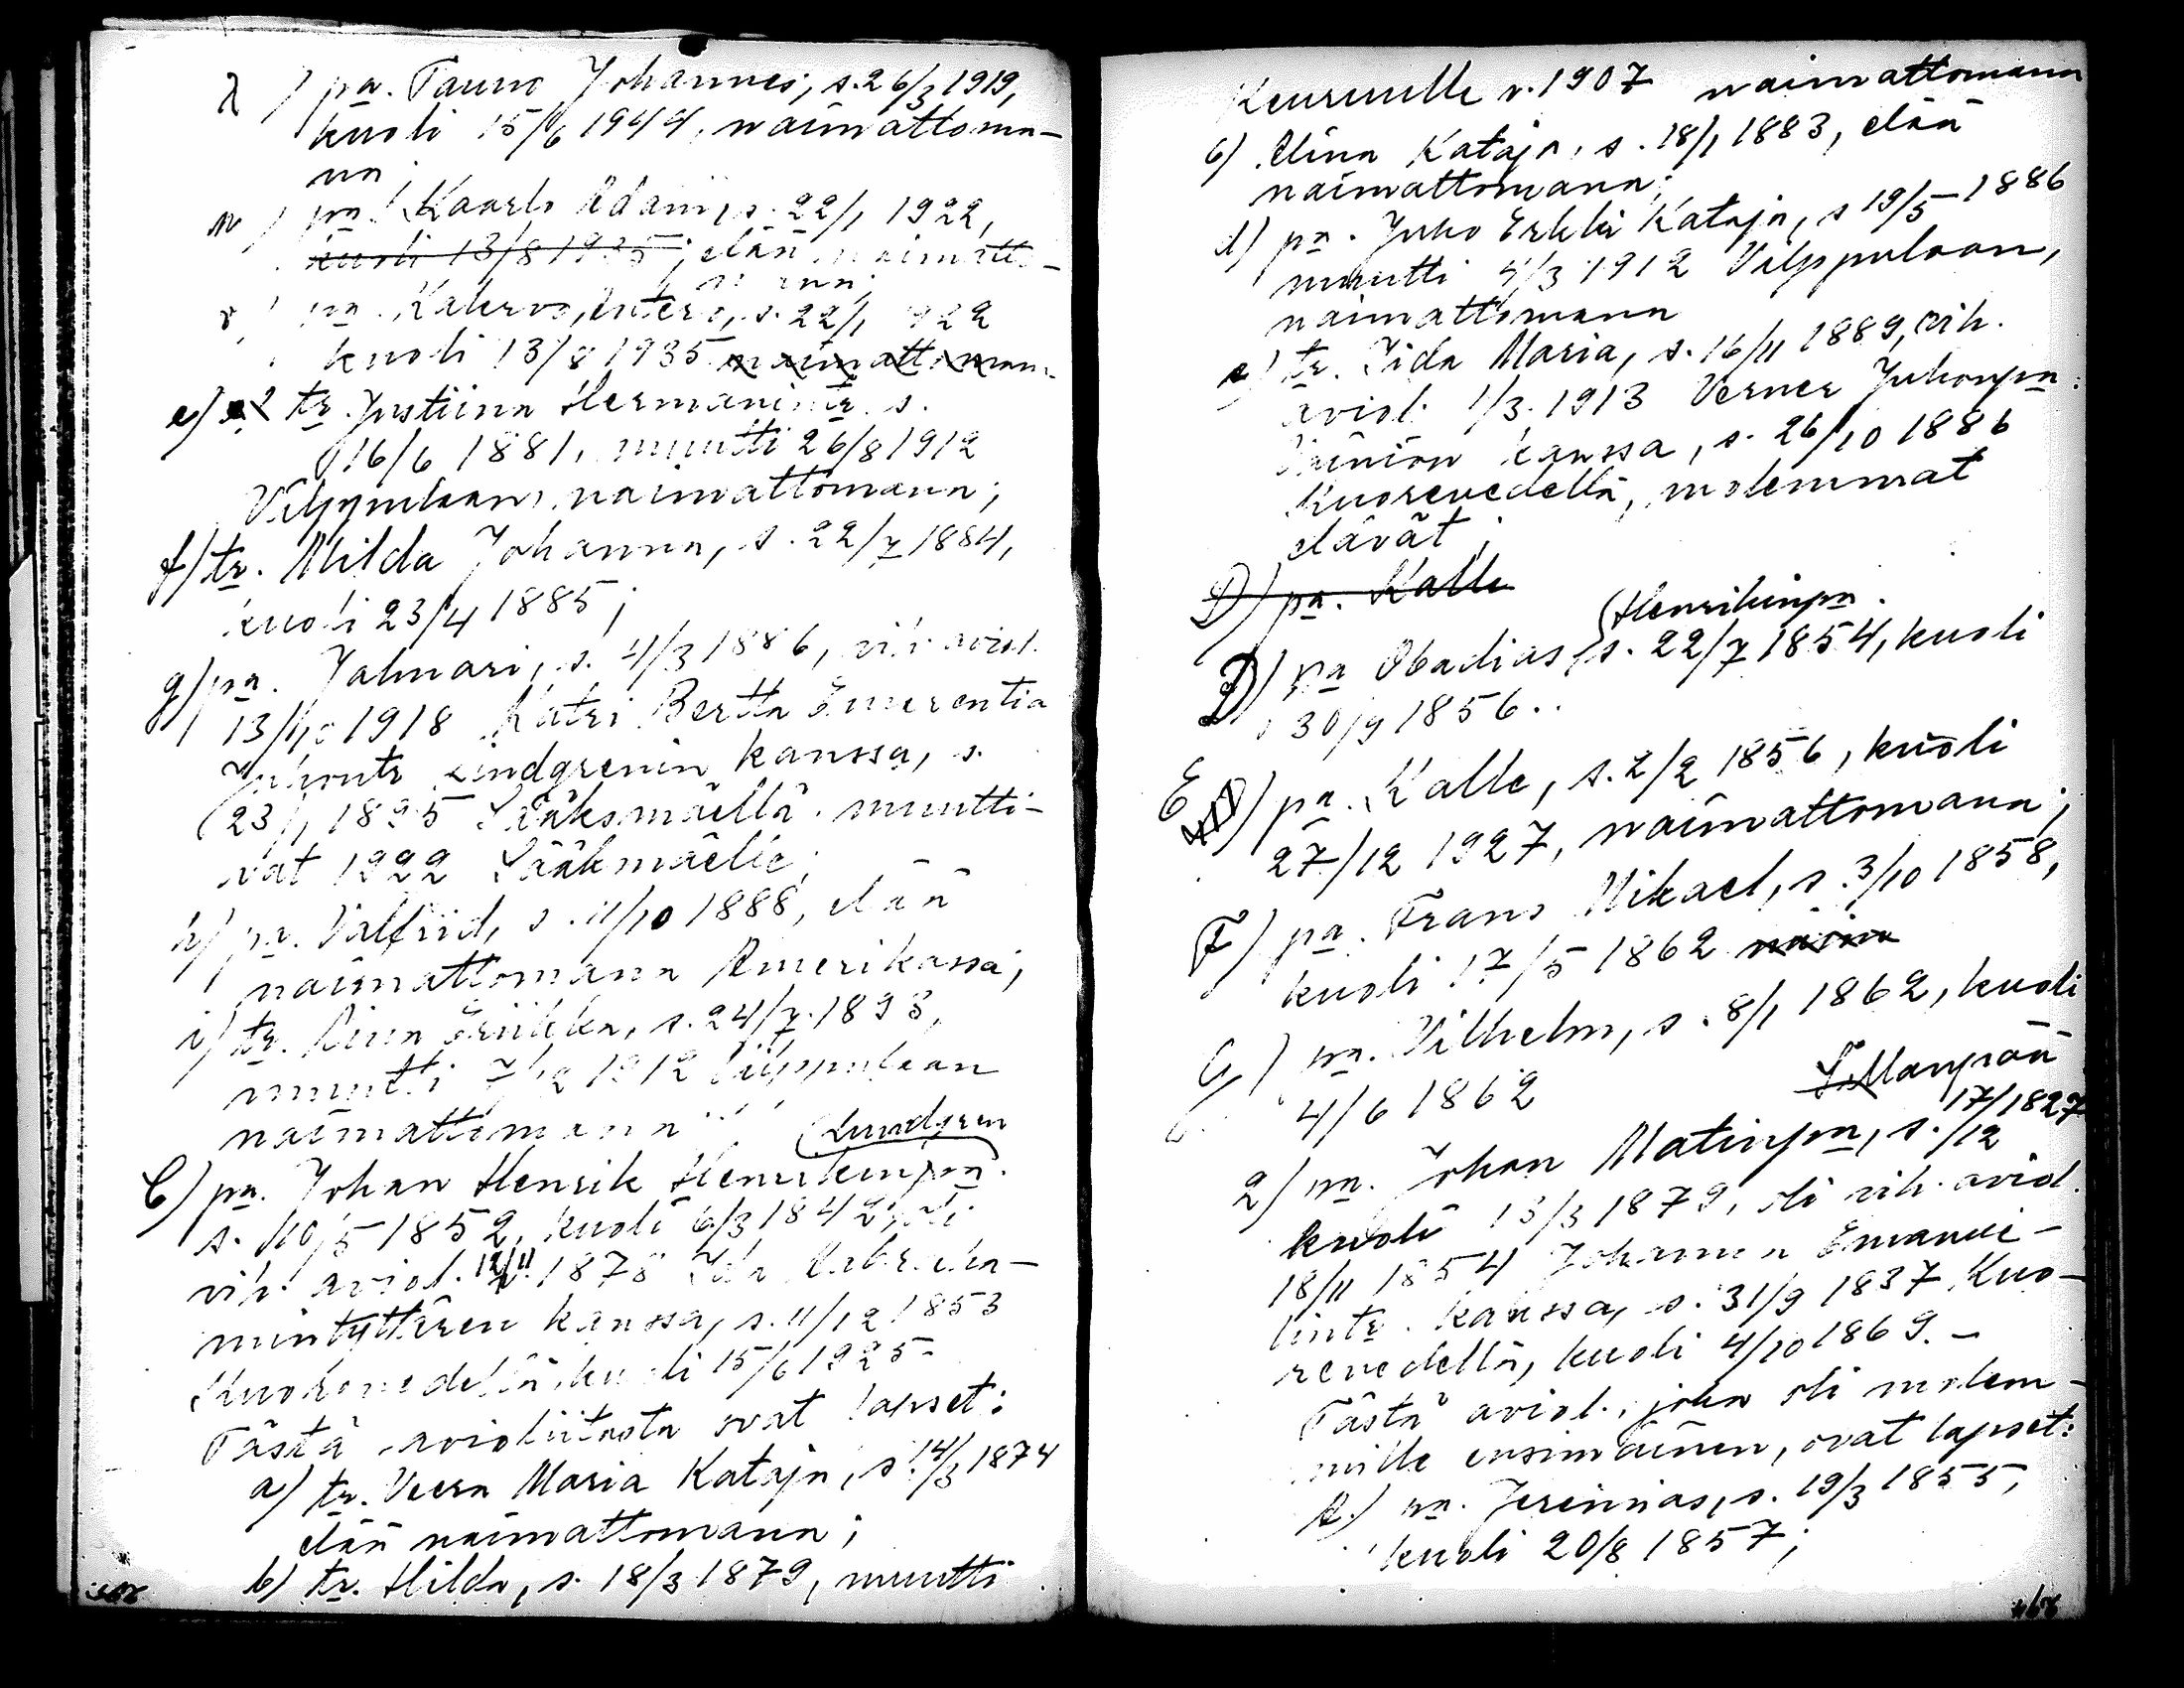 λ) pa. Tauno Johannes, s. 26/3 1919,
kuoli 15/6 1944, naimattoma-
na;
pa. Kaarlo Adam, s. 22/1 1922,
kuoli 13/8 1935; elää naimatto-
mana;
pa. Kalervo, Antero, s. 22/1 1922
kuoli 13/8 1935 naimattoman
e) tr. Justiina Hermanintr. s.
16/6 1881, muutti 26/8 1912
Vilppulaan, naimattomana;
f) tr. Milda Johanna, s. 22/7 1884,
kuoli 23/4 1885;
g) pa. Jalmari, s. 4/3 1886, vih. aviol.
13/10 1918 Katri Bertta Emerentia
Juhontr Lindgrenin kanssa, s.
23/1 1895 Sääksmäellä. muutti-
vat 1922 Sääksmäelle;
h) pa. Valfrid, s. 11/10 1888, elää
naimattomana Amerikassa;
i) tr. Eriikka, s. 24/7 1893,
muutti 1912 Vilppulaan
naimattomana;
Lundgren
C) pa. Johan Henrik Henrikinpa.
s. 10/5 1852, kuoli 6/3 1842; oli
vih. aviol. 12/11 1878
mintyttären kanssa, s. 11/12 1853
Kuorevedellä, kuoli 15/6 1925.
Tästä avioliitosta ovat lapset:
a) tr. Veera Maria Kataja, s. 14/3 1874
elää naimattomana;
b) tr. Hilda, s. 18/3 1879, muutti
Keuruulle v. 1907 naimattomana
c) Alina Kataja, s. 18/1 1883, elää
naimattomana;
d) pa. Juho Erkki Kataja, s 19/5 1886
muutti 4/3 1912 Vilppulaan,
naimattomana
e) tr. Iida Maria, s. 16/11 1889, vih.
aviol. 1/3. 1913 Verner Juhonpa.
kanssa, s. 26/10 1886
Kuorevedellä, molemmat
elävät;
D) pa. Kalle
Henrikinpa.
D) pa Obadias, s. 22/7 1854, kuoli
30/9 1856..
E) pa. Kalle, s. 2/2 1856, kuoli
27/12 1927, naimattomana;
F) pa. Frans Mikael, s. 3/10 1858,
kuoli 17/5 1862 naima
G) pa. Vilhelm, s. 8/1 1862, kuoli
4/6 1862
Sillanpää
2) pa. Johan Matinpa, s. 17/12 1827
kuoli 13/3 1879, oli vih. aviol.
18/11 1854 Johanna Emanue-
lintr. kanssa, s. 31/9 1837 Kuo-
revedellä, kuoli 4/10 1869.-
Tästä aviol., joka oli molem-
mille ensimäinen, ovat lapset:
A.) pa. Jeremias, s. 19/3 1855,
kuoli 20/8 1857;